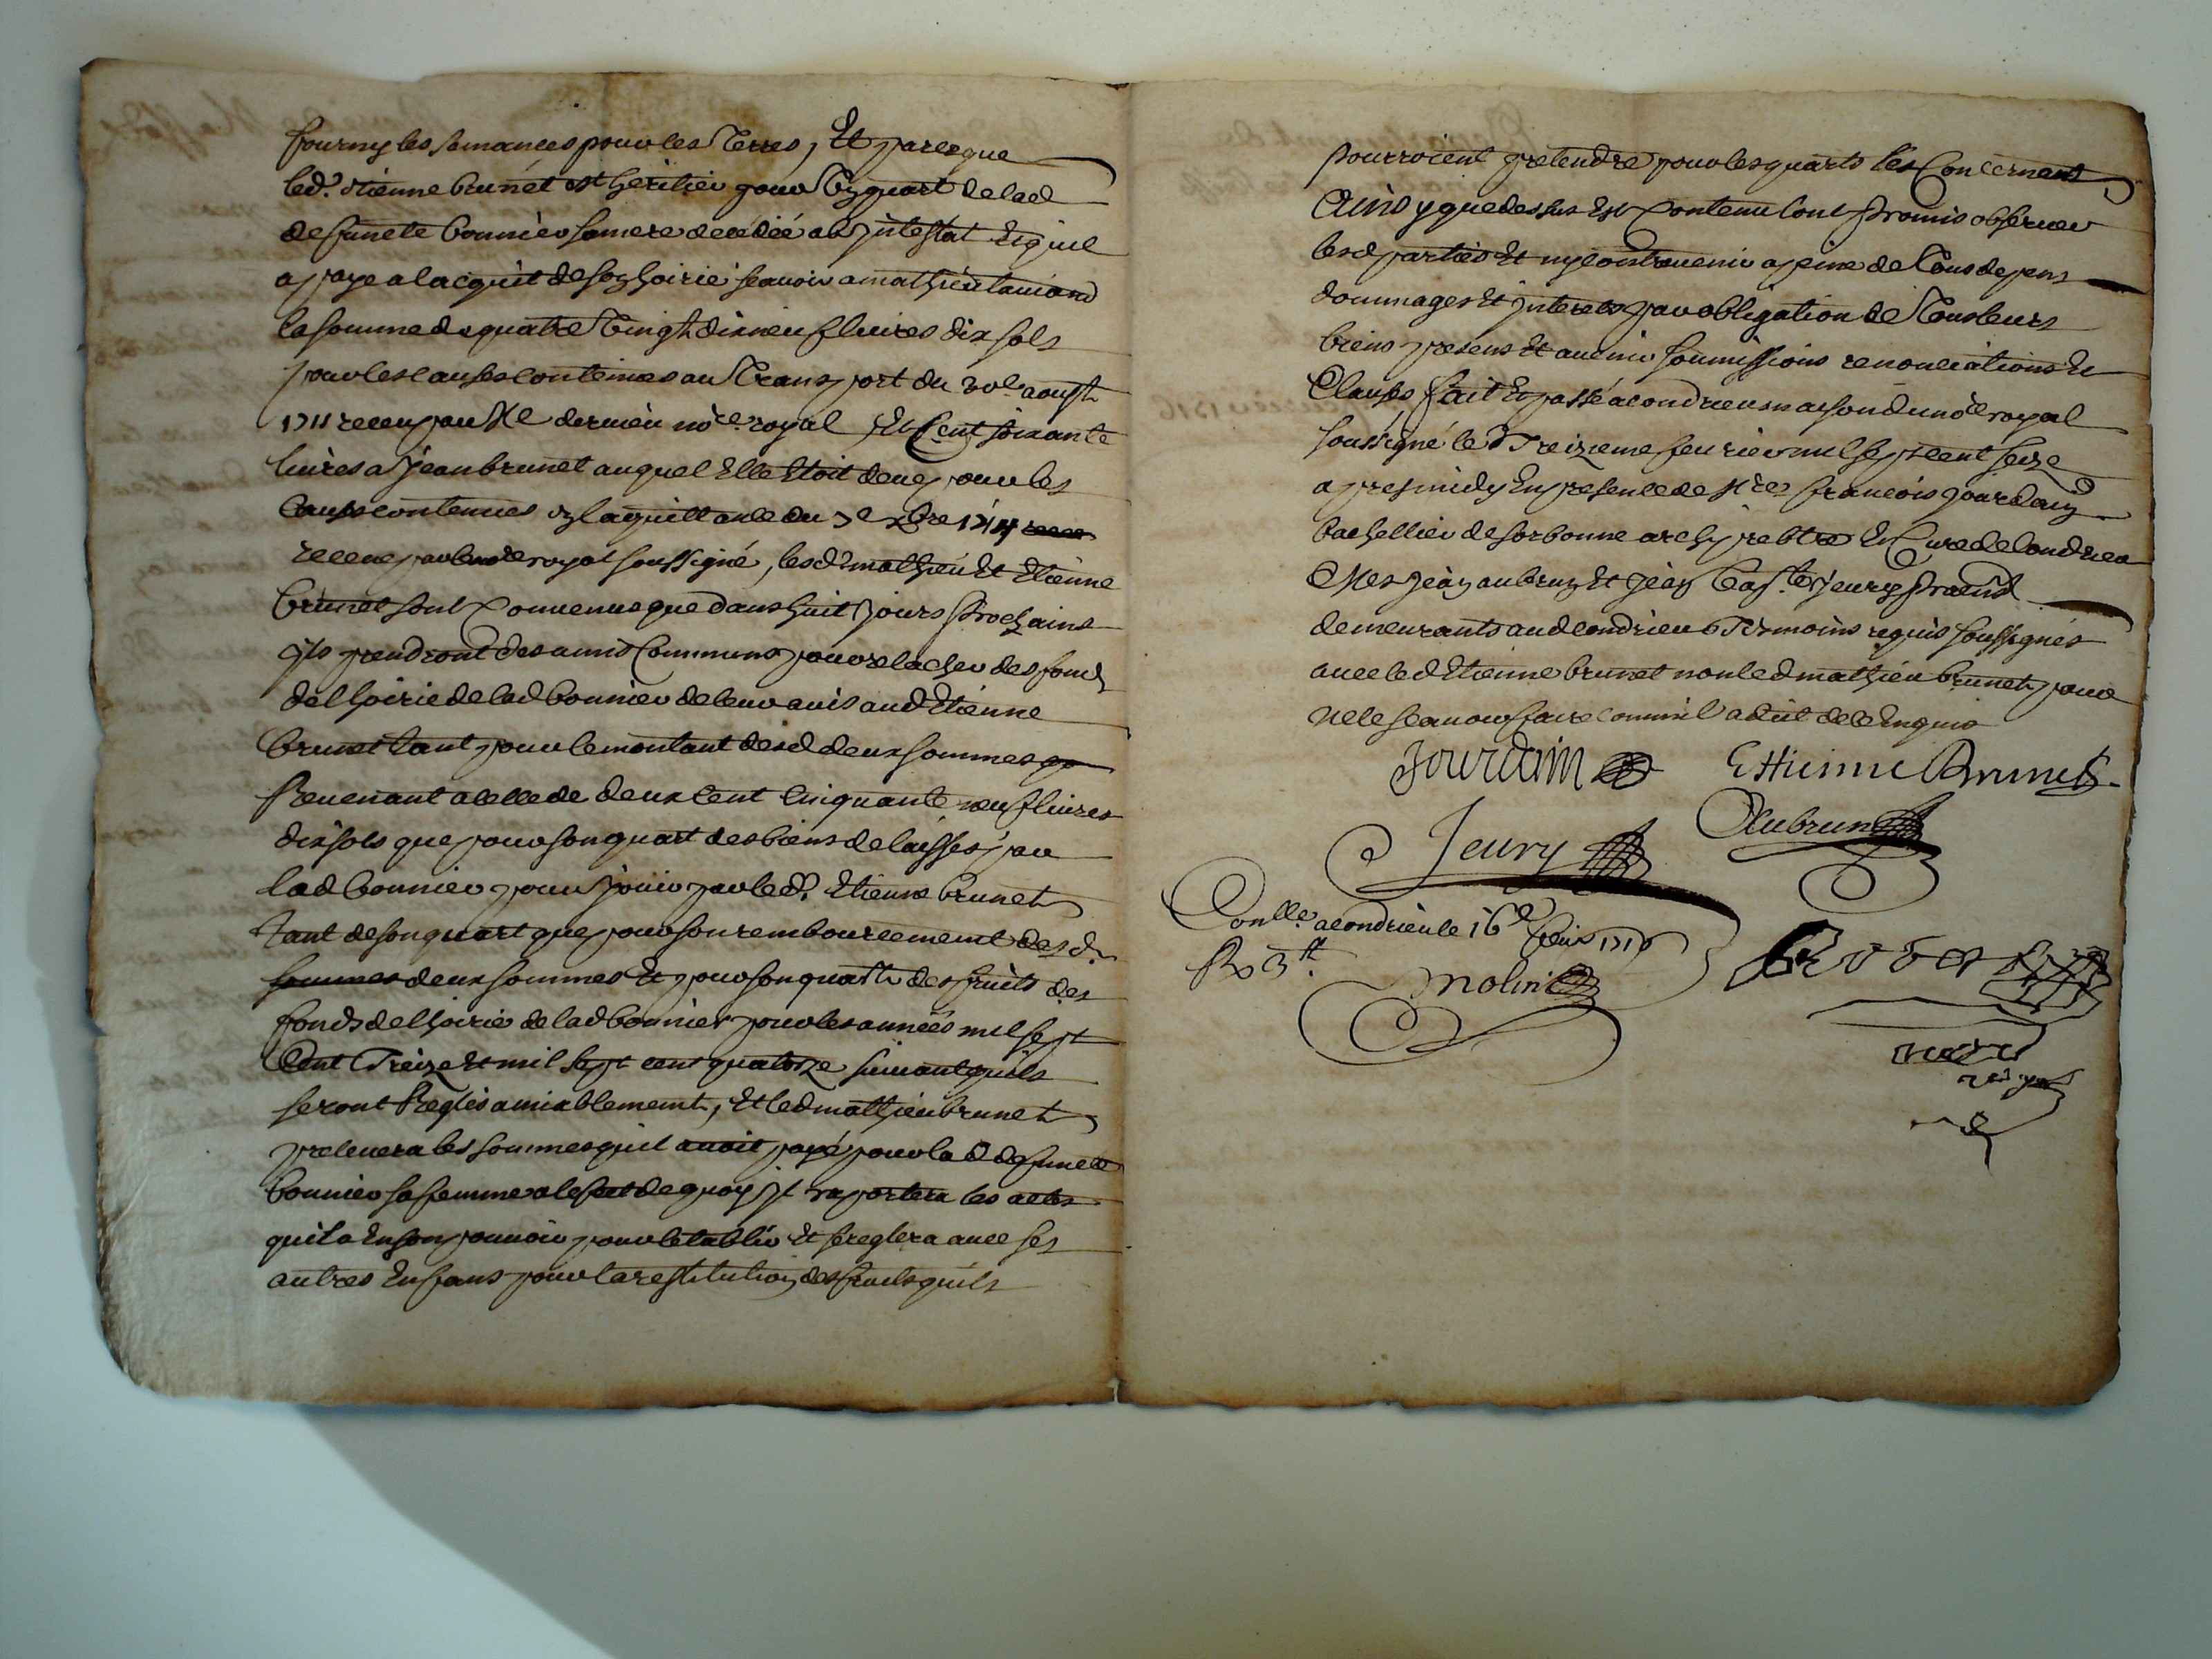 fourny les semances pour les Terres, Et parceque
led.t Etienne brunet est heritier pour Un quart de lad
defuncte bonnier sa mere decedée ab intestat Et quil
a paye a lacquit de son hoirie scauoir a mathieu
la somme de quatre Vingt dix neuf liures dix sols
pour les causes contenues au Transport du 30e aoust
1711 receu par Me dernier no.re royal Et Cent soixante
liures a Jean brunet auquel Elle Etoit deue pour les
causes contenues En la quittance du 3e xbre 1714
receue par le no.re royal soussigné, lesd mathieu Et Etienne
brunet sont Conuenus que dans huit Jours Prochains
Ils prendront des amis Communs pour relacher des fonds
de lhoirie de lad bonnier de leur auis aud Etienne
brunet tant pour le montant desd deux sommes
Reuenant a celle de deux cent cinquante neuf liures
dix sols que pour son quart des biens delaissés par
lad bonnier pour Jouir par led.t Etienne brunet
Tant de son quart que pour son remboursement desd.
sommes deux sommes Et pour son quart des fruits des
fonds de lhoirie de lad bonnier pour les années mil sept
Cent Treize Et mil sept cent quatorze suiuant quils
seront Reglés amiablement, Et led mathieu brunet
preleuera les sommes quil auoit payé pour lad defuncte
bonnier sa femme a leffect de quoy Il raportera les actes
quil a En son pouuoir pour letablir Et se reglera auec ses
autres Enfans pour la restitution des fruits quils
pourroient pretendre pour les quarts les Concernant
Ainsy que dessus Est Contenu lont Promis obseruer
lesd parties Et ny contreuenir a peine de Tous depens
dommages Et Interets par obligation de Tous leurs
biens presens Et auenir soumissions renonciations Et
Clauses, fait Et passé a condrieu maison du no.re royal
soussigné le Treizieme feurier mil sept cent seize
apres midy En presence de Mre françois Jourdain
bachellier de sorbonne archiprebtre Et Curé de Condrieu
Mes Jean aubrun Et Jean bap.te Jeury Praticien
demeurants aud condrieu Temoins requis soussignés
auec led Etienne brunet non led mathieu brunet pour
ne le scauoir faire comme il a dit de ce Enquis
Jourdain Ettienne Brunet
Jeury Aubrun
Conlle. a condrieu le 16e feur 1716
R 3tt.
molin